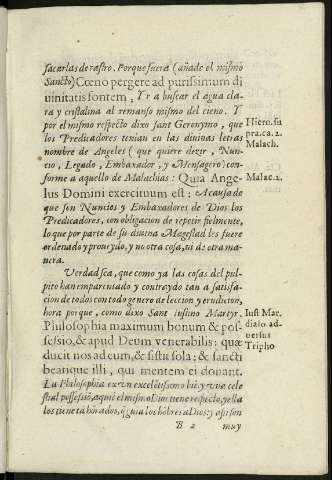 sacarlas de rastro. Porque fuera (añade el mismo
Santo) Cœno pergere ad purissimum di
uinitatis fontem, Yr a buscar el agua cla-
ra y cristalina al remanso mismo del cieno. Y
por el mismo respeto dixo sant Geronymo, que
los Predicadores tenian en las diuinas letras
nombre de Angeles (que quiere dezir, Nun-
cio, Legado, Embaxador, y Mensagero) con-
forme a aquello de Malachias: Quia Ange-
lus Domini exercituum est: A causa de
que son Nuncios y Embaxadores de Dios los
Predicadores, con obligacion de repetir fielmente,
lo que por parte de su diuina Magestad les fuere
ordenado y proueydo, y no otra cosa, ni de otra ma-
nera.
Hiero. su
pra. ca. 2.
Malach.
Malac. 2.
Verdad sea, que como ya las cosas del pul-
pito han emparentado y contraydo tan a satisfa-
cion de todos con todo genero de leccion y erudicion,
hora por que, como dixo Sant Iustino Martyr.
Philosophia maximum bonum & pos-
sessio, & apud Deum venerabilis: quæ
ducit nos ad eum, & sistit sola: & sancti
beatique illi, qui mentem ei donant.
La Philosophia es vn excelētissimo biē y vna cele
stial possessiō, a quiē el mismo Dios tiene respecto, y ella
los tiene tā hōrados, q̄ guia los hōbres a Dios: y assi son
Iust Mar.
dialo ad-
uersus
Tripho
B 2 muy